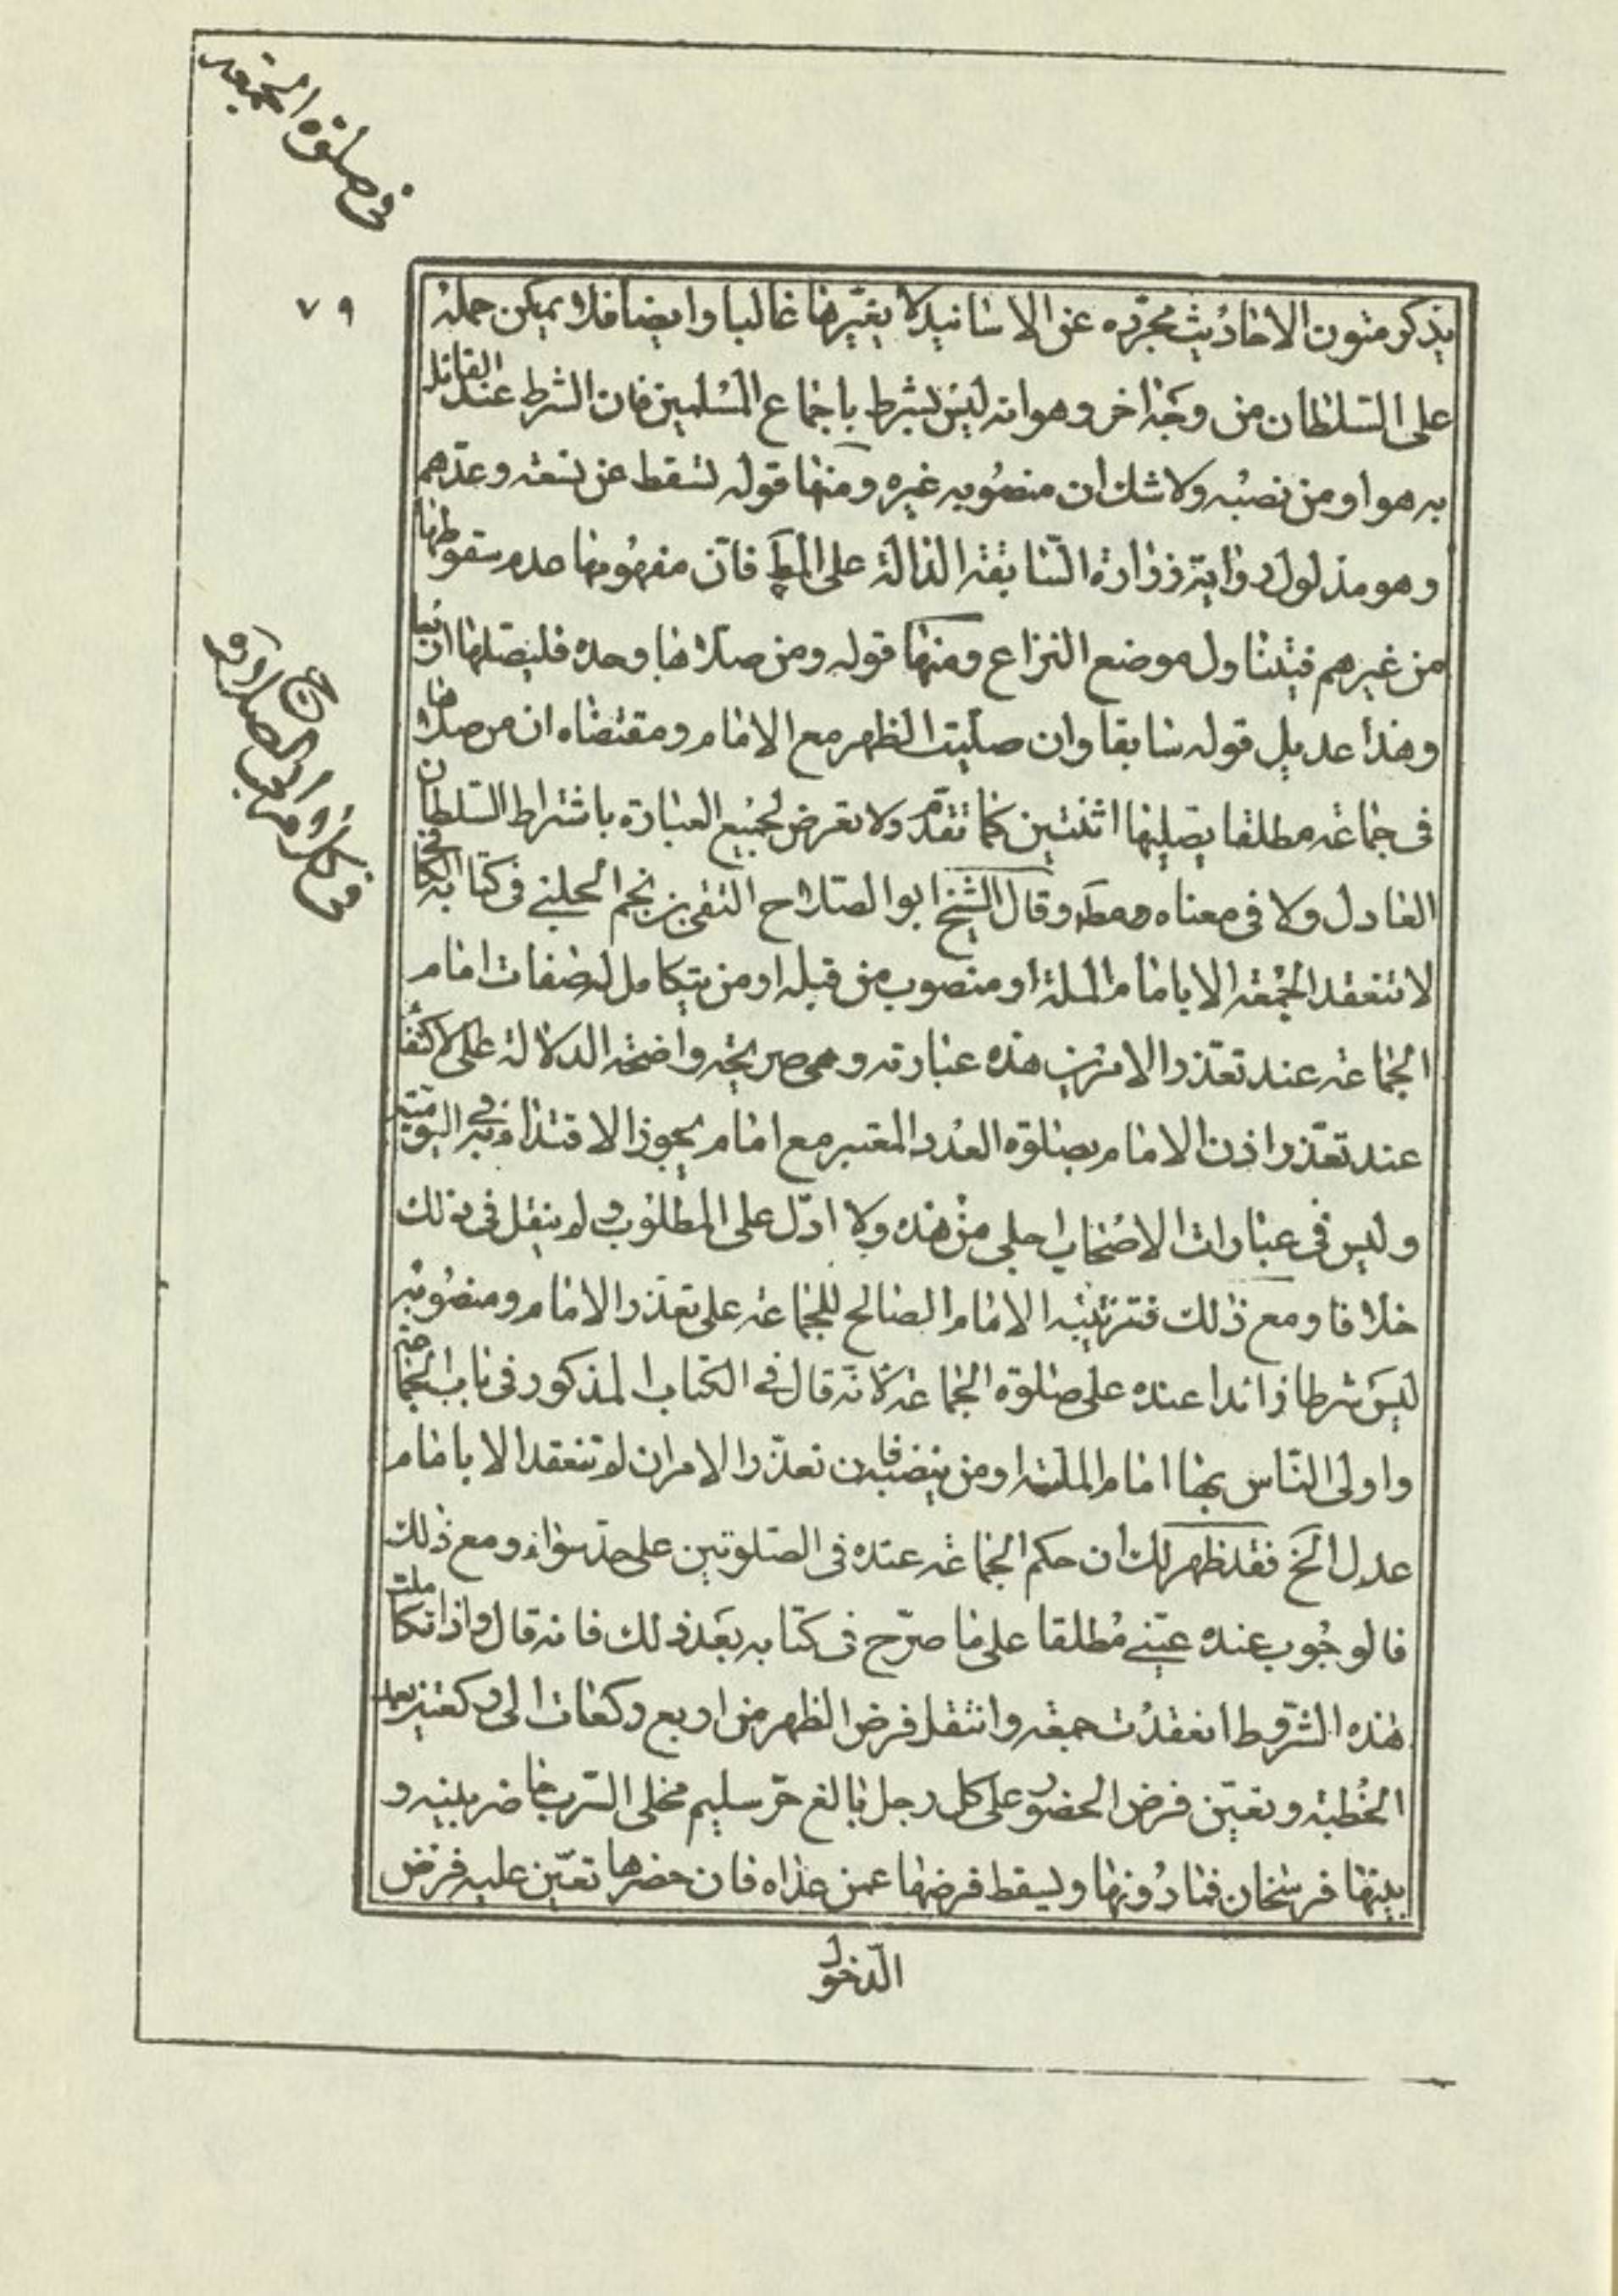 فى صلوة الجمعه
٧٩
يذكر متون الاحاديث مجرّده عن الاسانيد لا يغيّرها غالبا وايضا فلا يمكن حمله
على السّلطان من وجه اخر وهو انه ليس بشرط باجماع المسلمين فان الشرط عند القائل
به هو او من نصبه ولا شك ان منصوبه غيره ومنها قوله تسقط عن تسعة وعدّهم
وهو مدلول رواية زرارة السّابقة الدالة على المط فانّ مفهومها عدم سقوطها
من غيرهم فيتناول موضع النزاع ومنها قوله ومن صلاها وحده فليصلّها اربعا
وهذا عديل قوله سابقا وان صلّيت الظهر مع الامام ومقتضاه ان من صلاها
فى جماعة مطلقا يصلّيها اثنتين كما تقدّم ولا تعرض لجميع العبارة باشتراط السّلطان
العادل ولا فى معناه ومط وقال الشيخ ابو الصّلاح التقى بن نجم الحلبى فى كتابه الكافى
لا تنعقد الجمعة الا بامام الملة او منصوب من قبله او من يتكامل له صفات امام
الجماعة عند تعذّر الامرين هذه عبارته وهى صريحة واضحة الدلالة على الاكتفاء
عند تعذّر اذن الامام بصلوة العدد المعتبر مع امام يجوز الاقتداء به فى اليومية
وليس فى عبارات الاصحاب اجلى من هذه ولا ادلّ على المطلوب ولم ينقل فى ذلك
خلافا ومع ذلك فترتيبه الامام الصالح للجماعة على تعذّر الامام ومنصوبه
ليس شرطا زائدا عنده على صلوة الجماعة لانّه قال فى الكتاب المذكور فى باب الجماعة
واولى النّاس بها امام الملة او من ينصبه فان تعذّر الامران لم تنعقد الا بامام
عدل الخ فقد ظهر لك ان حكم الجماعة عنده فى الصّلوتين على حدّ سواء ومع ذلك
فالوجوب عنده عينى مطلقا على ما صرّح فى كتابه بعد ذلك فانه قال واذا تكاملت
هذه الشّروط انعقدت جمعة وانتقل فرض الظهر من اربع ركعات الى ركعتين بعد
الخطبة وتعيّن فرض الحضور على كل رجل بالغ حرّ سليم مخلى السّرب حاضر بينه و
بينها فرسخان فما دونها ويسقط فرضها عمن عداه فان حضرها تعيّن عليه فرض
الدّخول